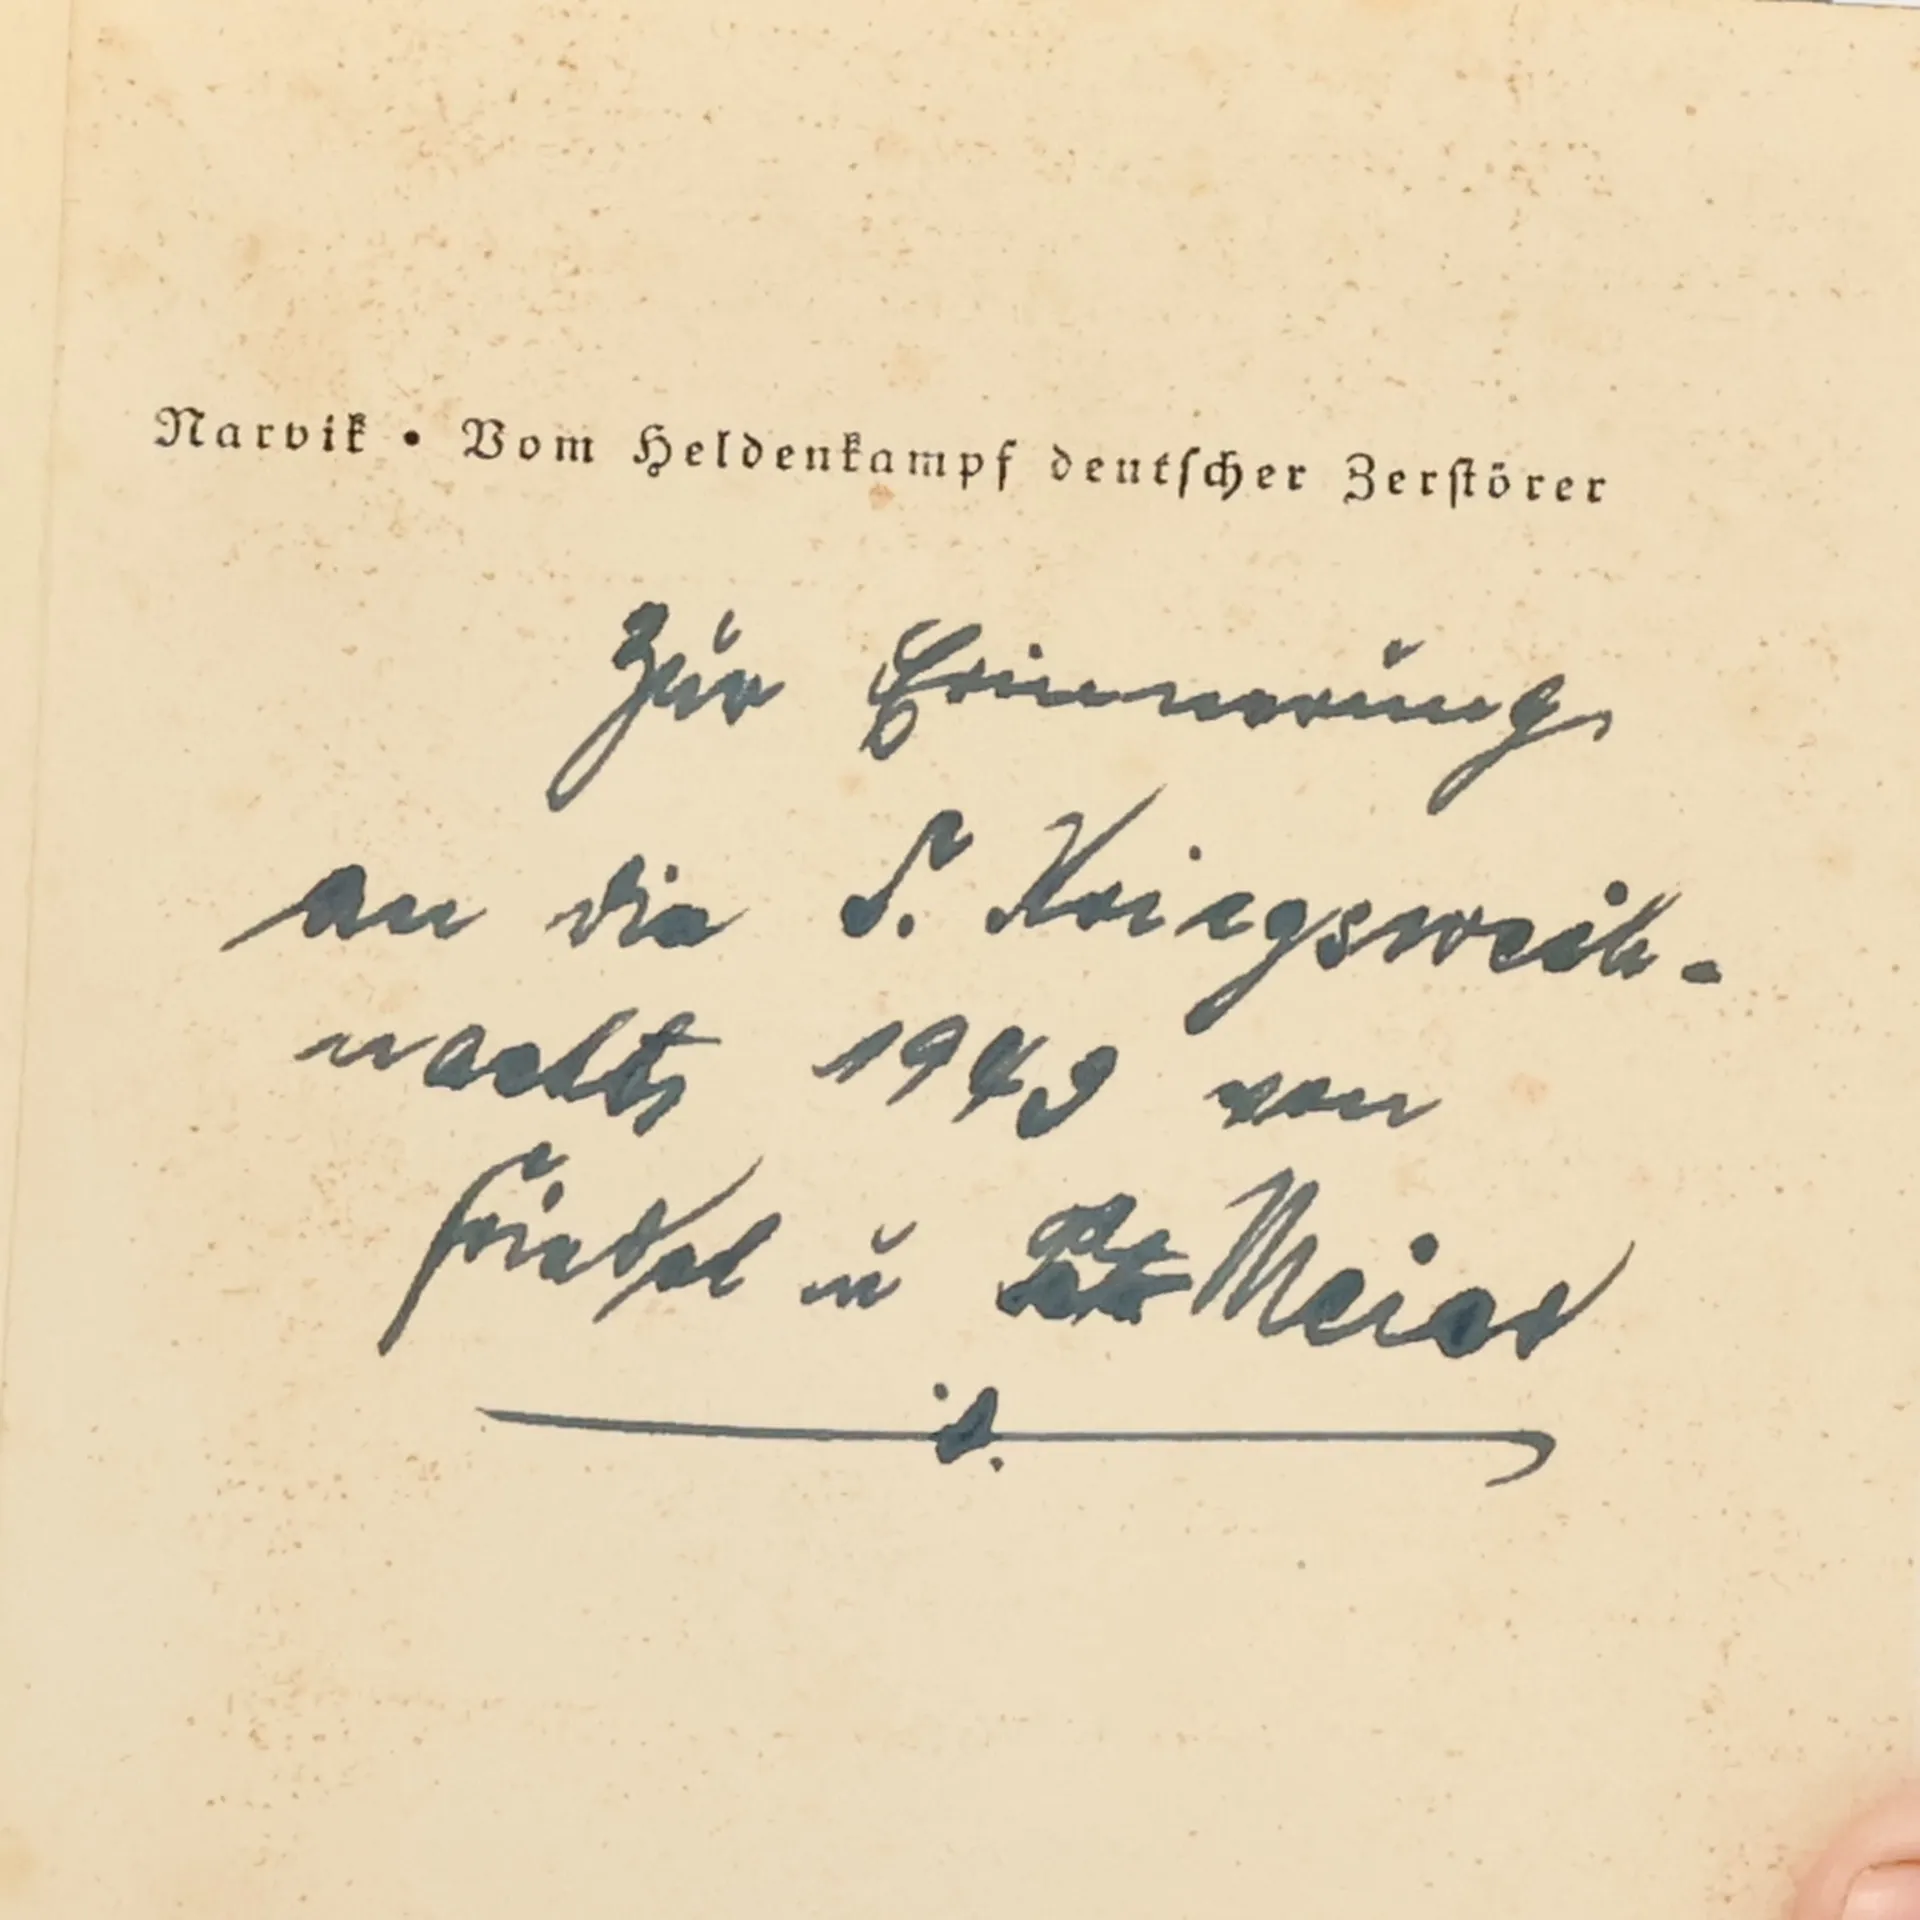 Narvik • Vom Heldenkampf deutscher Zerstörer
Zur Erinnerung
an die 5. Kriegsweih-
nacht 1943 von
u Meier